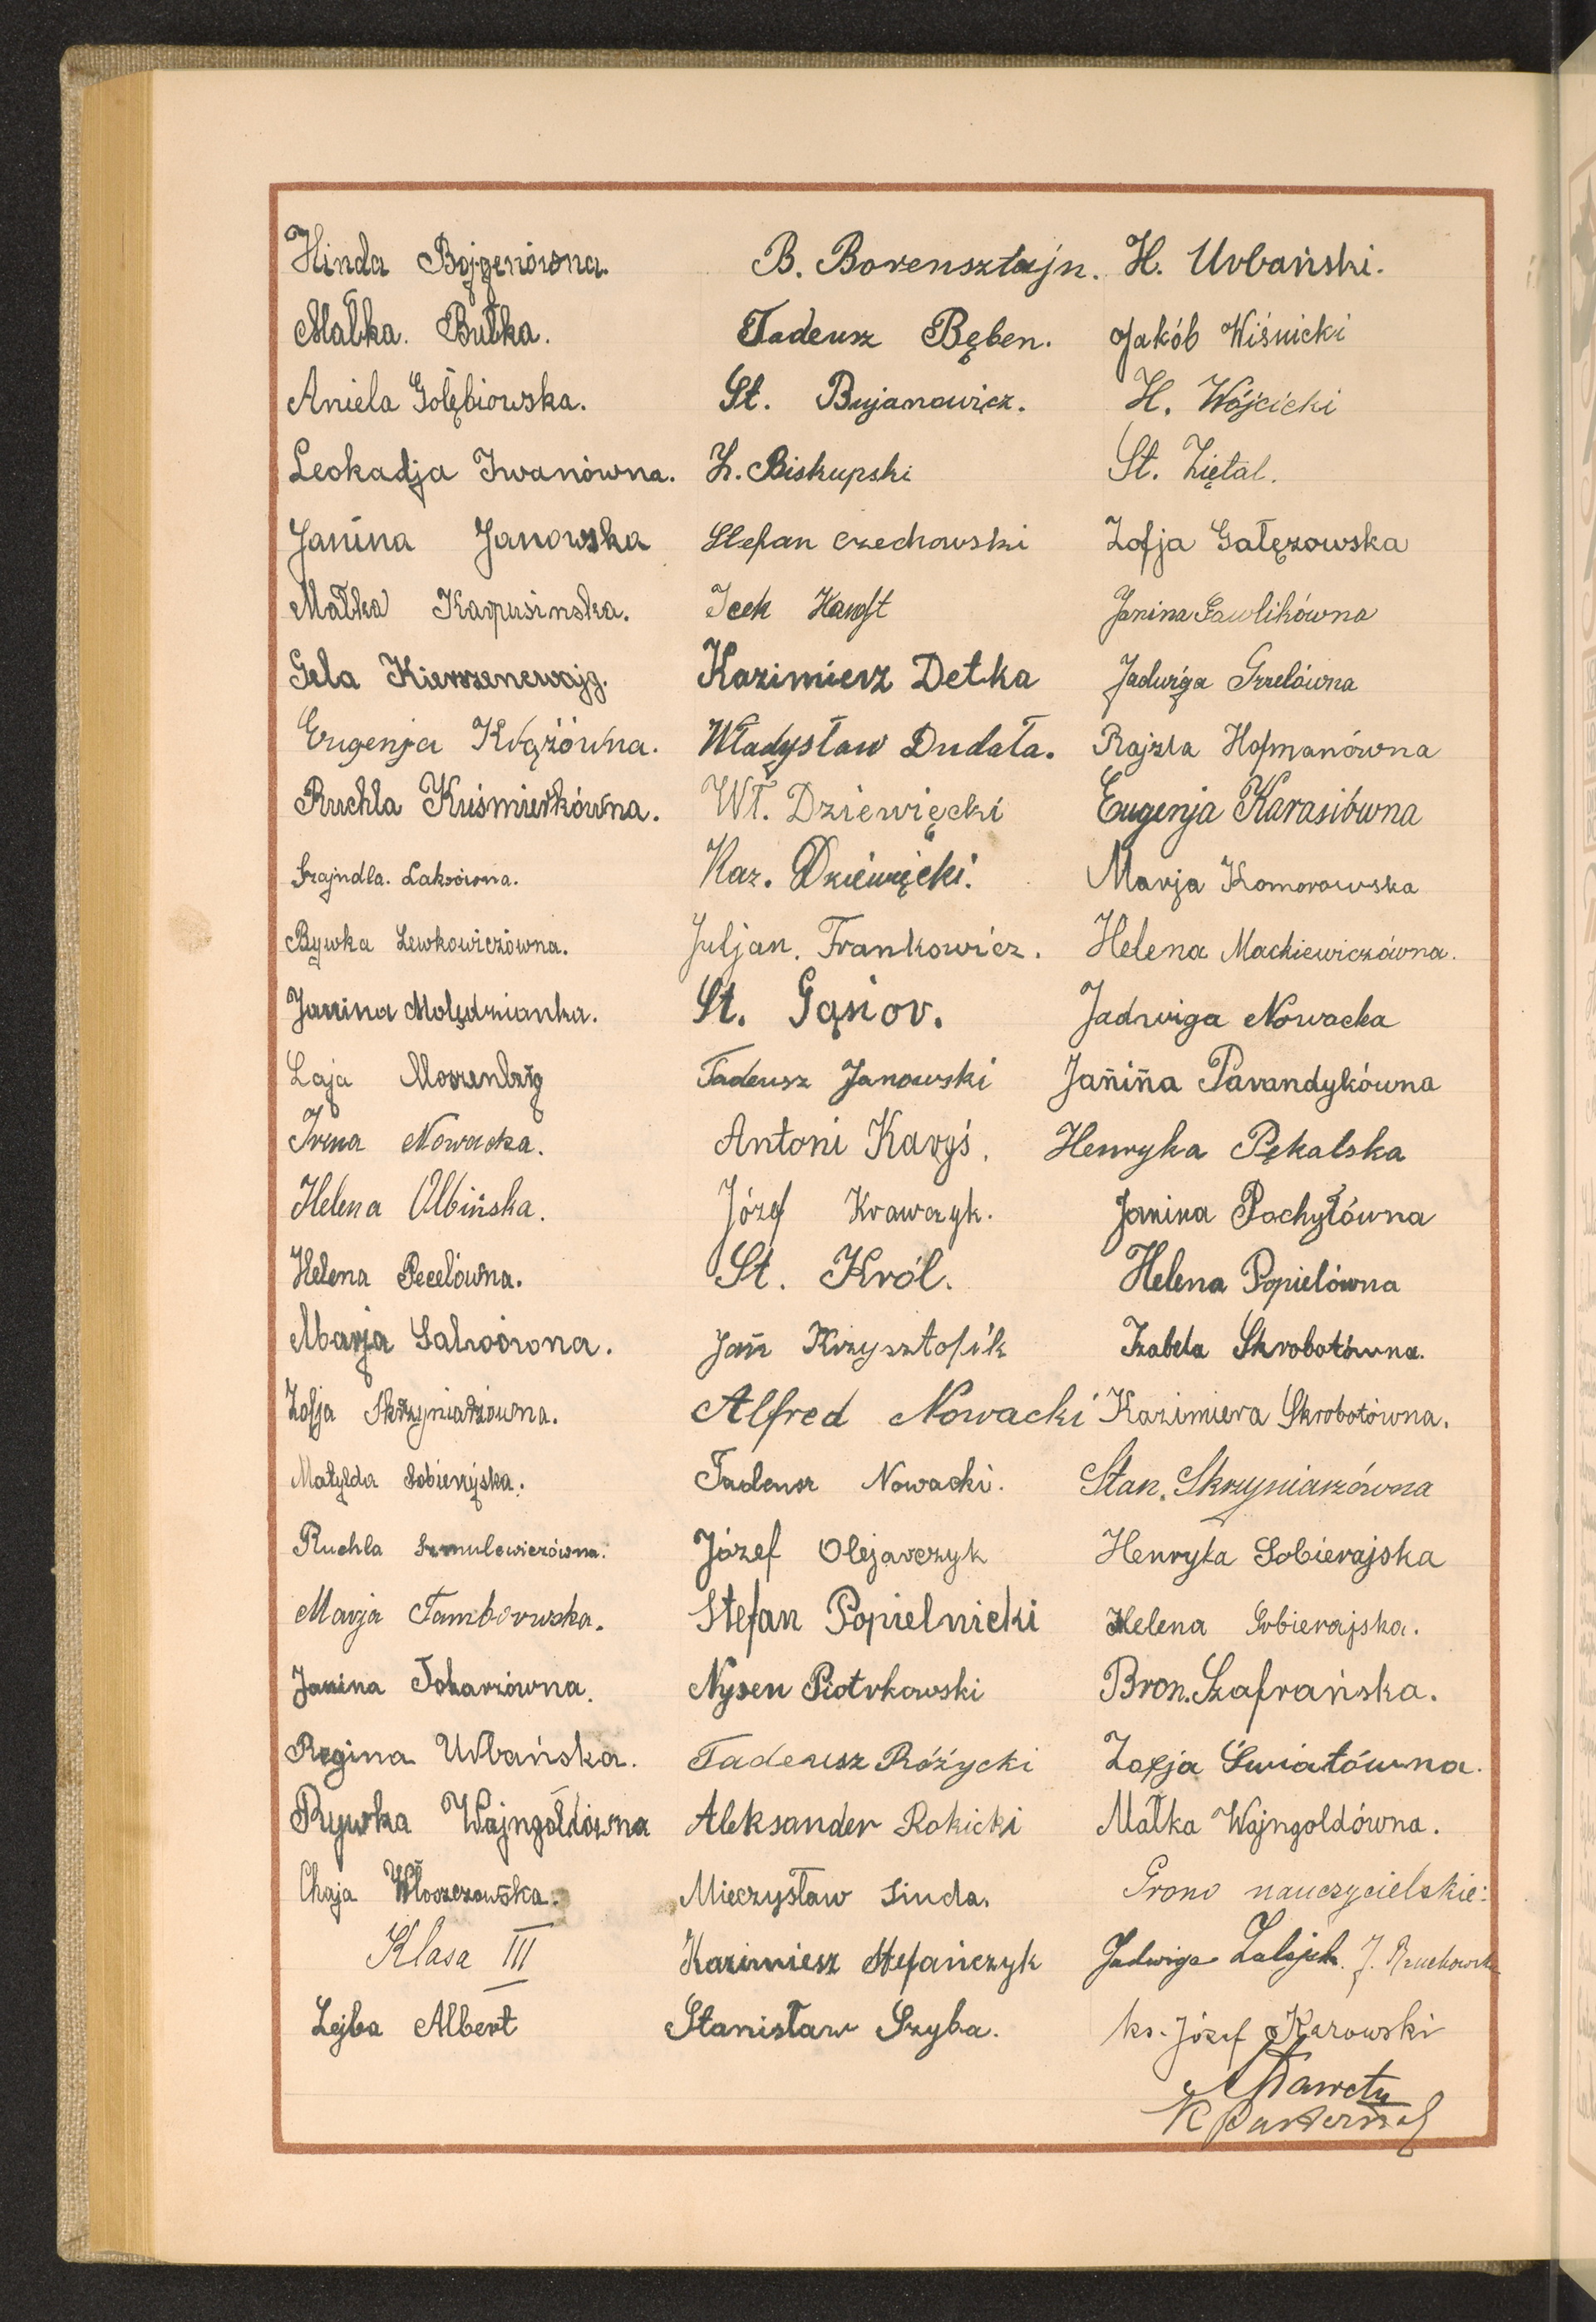 Hinda Bojgenówna.
Małka. Bułka.
Aniela Gołębiowska.
Leokadja Iwanówna.
Janina Janowska
Małka Kapusinska.
Gela Kierszenewajg.
Eugenja Krążówna.
Ruchla Kuśmierkówna.
Szajndla. Laksówna.
Rywka Lewkowiczówna.
Janina Molędzianka.
Laja
Irena Nowacka.
Helena Olbińska.
Helena Pecelówna.
Marja
Zofja Skrzyniarzówna.
Matylda
Ruchla Szmulewiczówna.
Marja Tamborowska.
Janina Tokarzówna.
Regina Urbańska.
Rywka Wajngoldówna
Chaja Włoszczowska.
Klasa III
Lejba Albert
B. Borensztajn.
Tadeusz Bęben.
St. Bujanowicz.
Z. Biskupski
Stefan Czechowski
Icek
Kazimierz Detka
Władysław Dudała.
Wł. Dziewięcki
Kaz. Dziewięcki.
Juljan. Frankowicz.
St. Gąsior.
Tadeusz Janowski
Antoni Karyś.
Józef Krawczyk.
St. Król.
Jan Krzysztofik
Alfred Nowacki
Tadeusz Nowacki.
Józef Olejarczyk
Stefan Popielnicki
Nysen Piotrkowski
Tadeusz Różycki
Aleksander Rokicki
Mieczysław Siuda.
Kazimierz Stefańczyk
Stanisław Szyba.
H. Urbański.
Jakób Wiśnicki
H. Wójcicki
St. Ziętal.
Zofja Gałęzowska
Janina Gawlikówna
Jadwiga Grzelówna
Rajzla Hofmanówna
Eugenja Karasiówna
Marja Komorowska
Helena Mackiewiczówna.
Jadwiga Nowacka
Janina Parandykówna
Henryka Pękalska
Janina Pochyłówna
Helena Popielówna
Izabela Skrobotówna.
Kazimiera Skrobotówna.
Stan. Skrzyniarzówna
Henryka Sobierajska
Helena Sobierajska.
Bron. Szafrańska.
Zofja Światówna.
Małka Wajngoldówna.
Grono nauczycielskie:
Jadwiga
ks. Józef Karowski